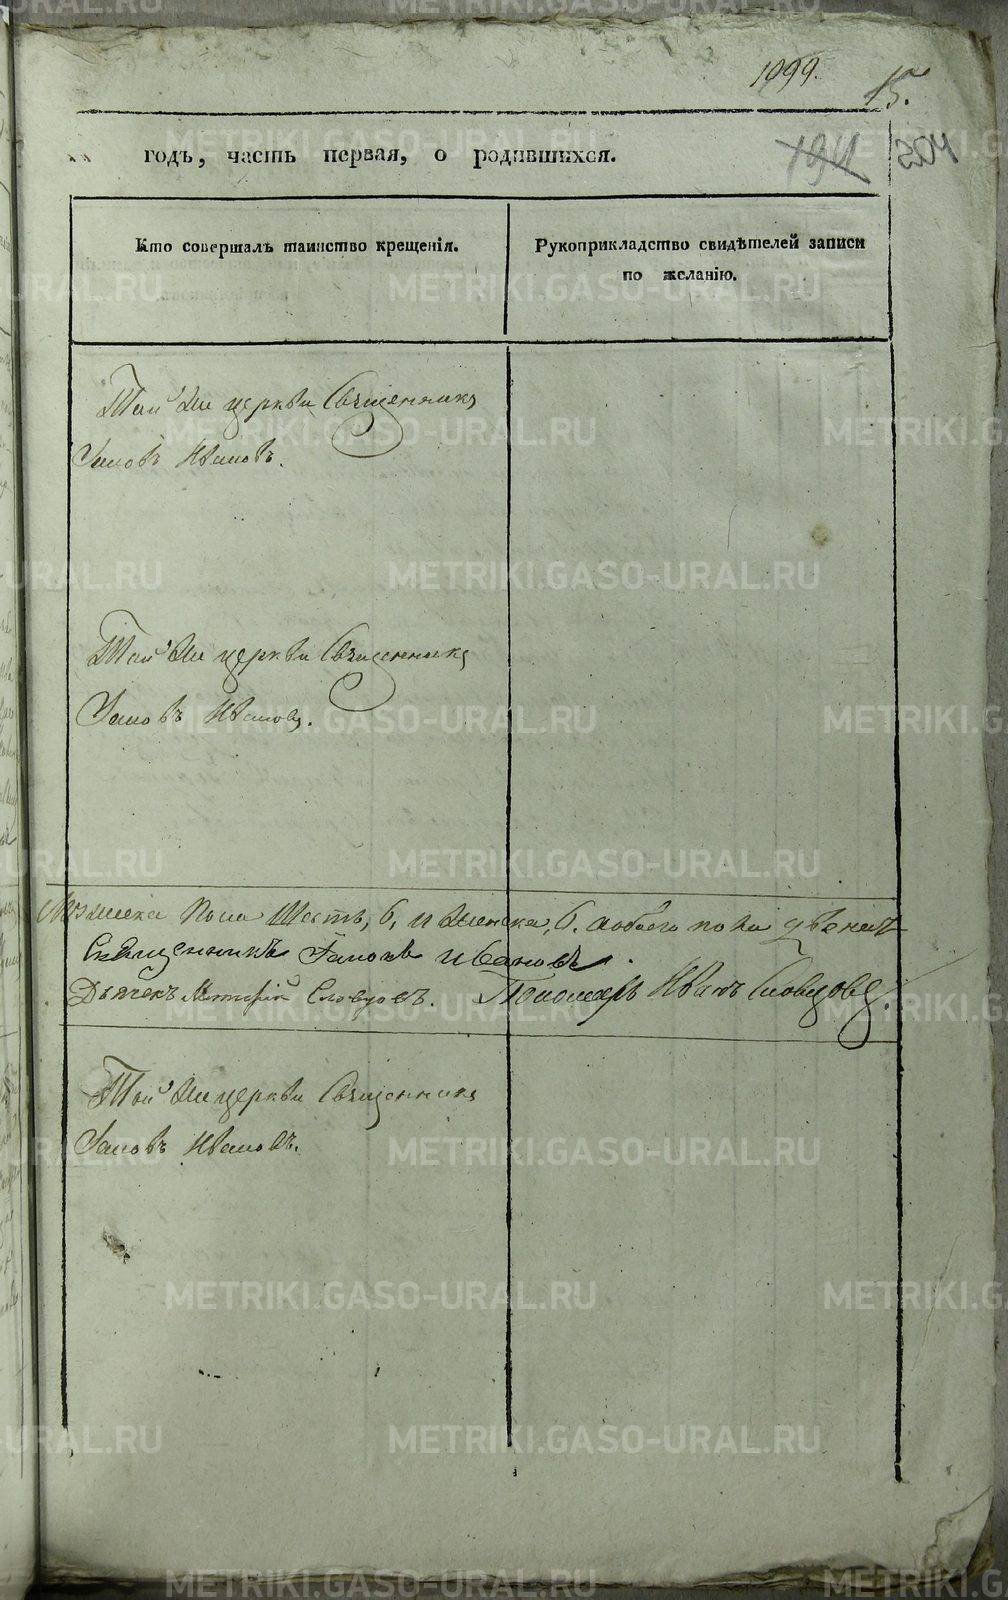 1099.
15.
191
годъ, часть первая, о родившихся.
Кто совершалъ таинство крещенія.
Рукоприкладство свидѣтелей записи
по желанію.
Той же церкви Священникъ
Іаковъ Ивановъ.
Той же церкви Священникъ
Іаковъ Ивановъ.
Мужеска пола Шесть, 6, и женска, 6. обоего пола
Священникъ Іаковъ Ивановъ.
Дьячекъ Словцовъ. Пономарь Иванъ Словцовъ.
Той же церкви Священникъ
Іаковъ Ивановъ.
METRIKI.GASO-URAL.RU